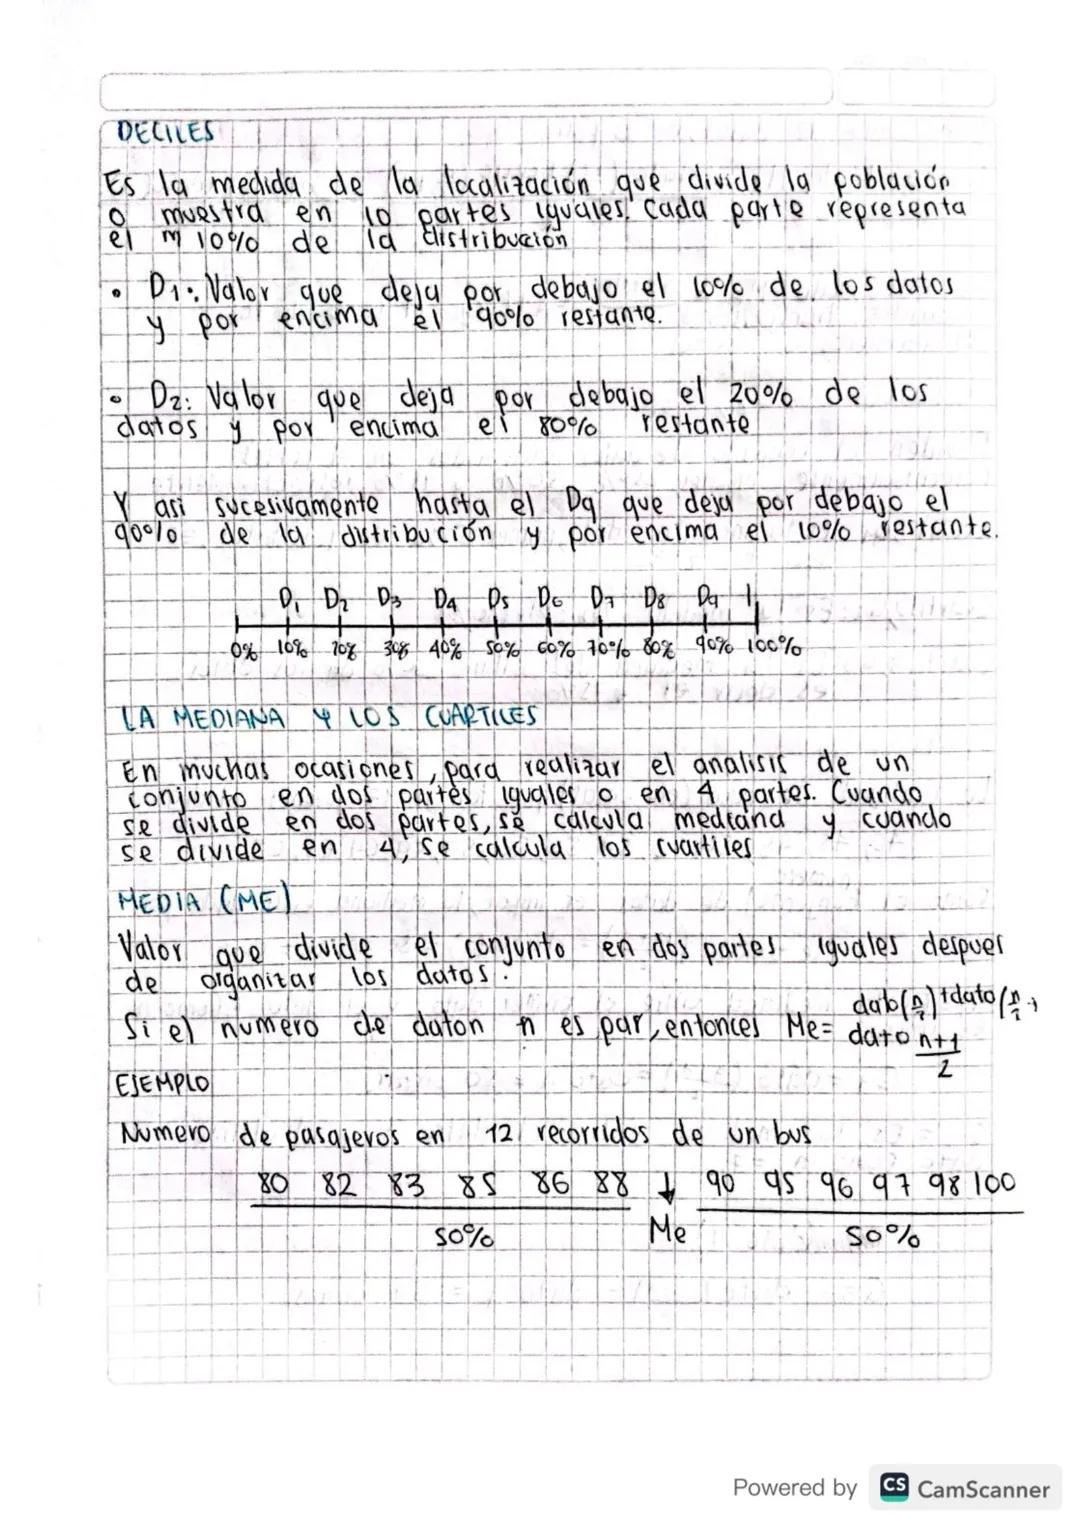 DECILES
Es la medida de la localización que divide la población
o muestra en 10 partes iguales. Cada parte representa
el m 10% de la distribución
• D1: Valor que deja por debajo el 10% de los datos
y por encima el 90% restante.
• D2: Valor que deja por debajo el 20% de los
datos y por encima el 80% restante
Y asi sucesivamente hasta el D9 que deja por debajo el
90% de la distribución y por encima el 10% restante.
D1 D2 D3 D4 D5 D6 D7 D8 D9 1
0% 10% 20% 30% 40% 50% 60% 70% 80% 90% 100%
LA MEDIANA Y LOS CUARTILES
En muchas ocasiones, para realizar el analisis de un
conjunto en dos partes iguales o en 4 partes. Cuando
se divide en dos partes, se calcula mediana y cuando
se divide en 4, se calcula los cuartiles
MEDIA (ME)
Valor que divide el conjunto en dos partes iguales despues
de organizar los datos.
dato(n/2)+dato(n/2
Si el numero de daton n es par, entonces Me= dato n+1
2
EJEMPLO
Numero de pasajeros en 12 recorridos de un bus
80 82 83 85 86 88 ↓ 90 95 96 97 98 100
50% Me 50%
Powered by CS CamScanner